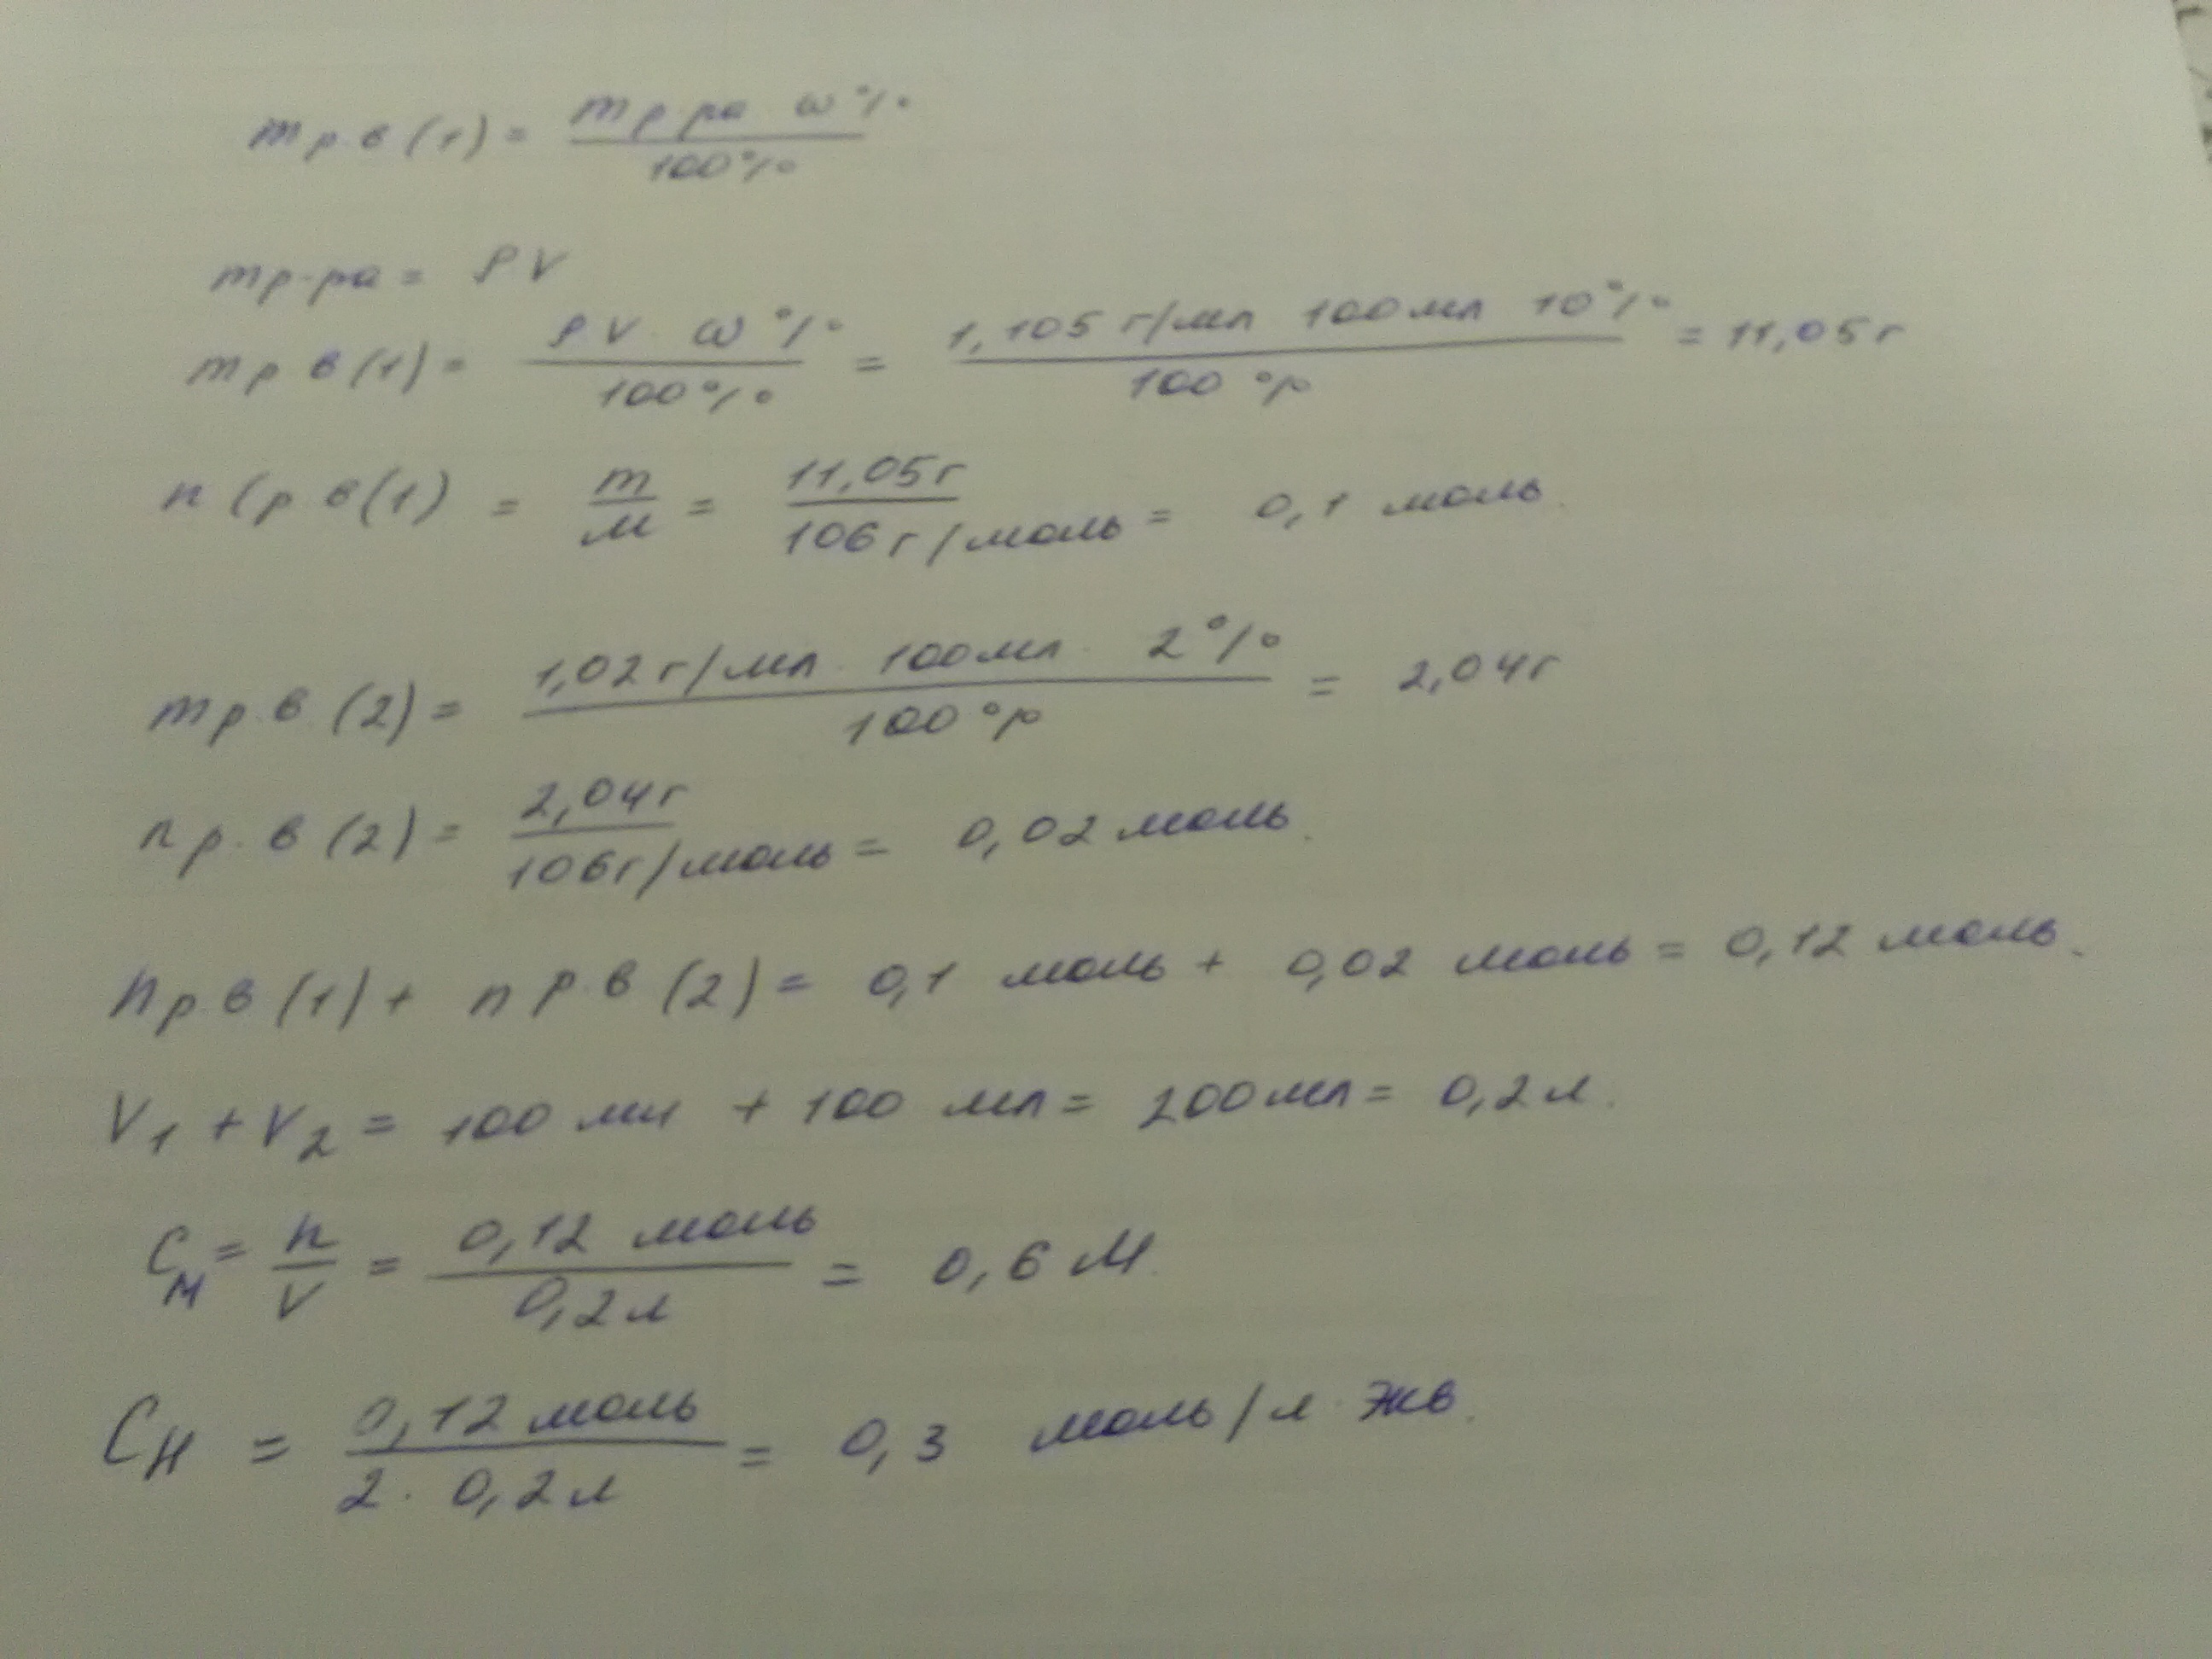 m р.в (1) = m р-ра ω% / 100%
m р-ра = ρ V
m р в (1) = ρ V · ω % / 100% = 1,105 г/мл 100 мл 10% / 100 % = 11,05 г
n (р в (1) = m / M = 11,05 г / 106 г/моль = 0,1 моль.
m р.в. (2) = 1,02 г/мл · 100 мл · 2% / 100 % = 2,04 г
n р. в (2) = 2,04 г / 106 г/моль = 0,02 моль.
n р в (1) + n р.в (2) = 0,1 моль + 0,02 моль = 0,12 моль.
V1 + V2 = 100 мл + 100 мл = 200 мл = 0,2 л.
CM = n / V = 0,12 моль / 0,2 л = 0,6 М.
CН = 0,12 моль / 2 · 0,2 л = 0,3 моль/л · экв.